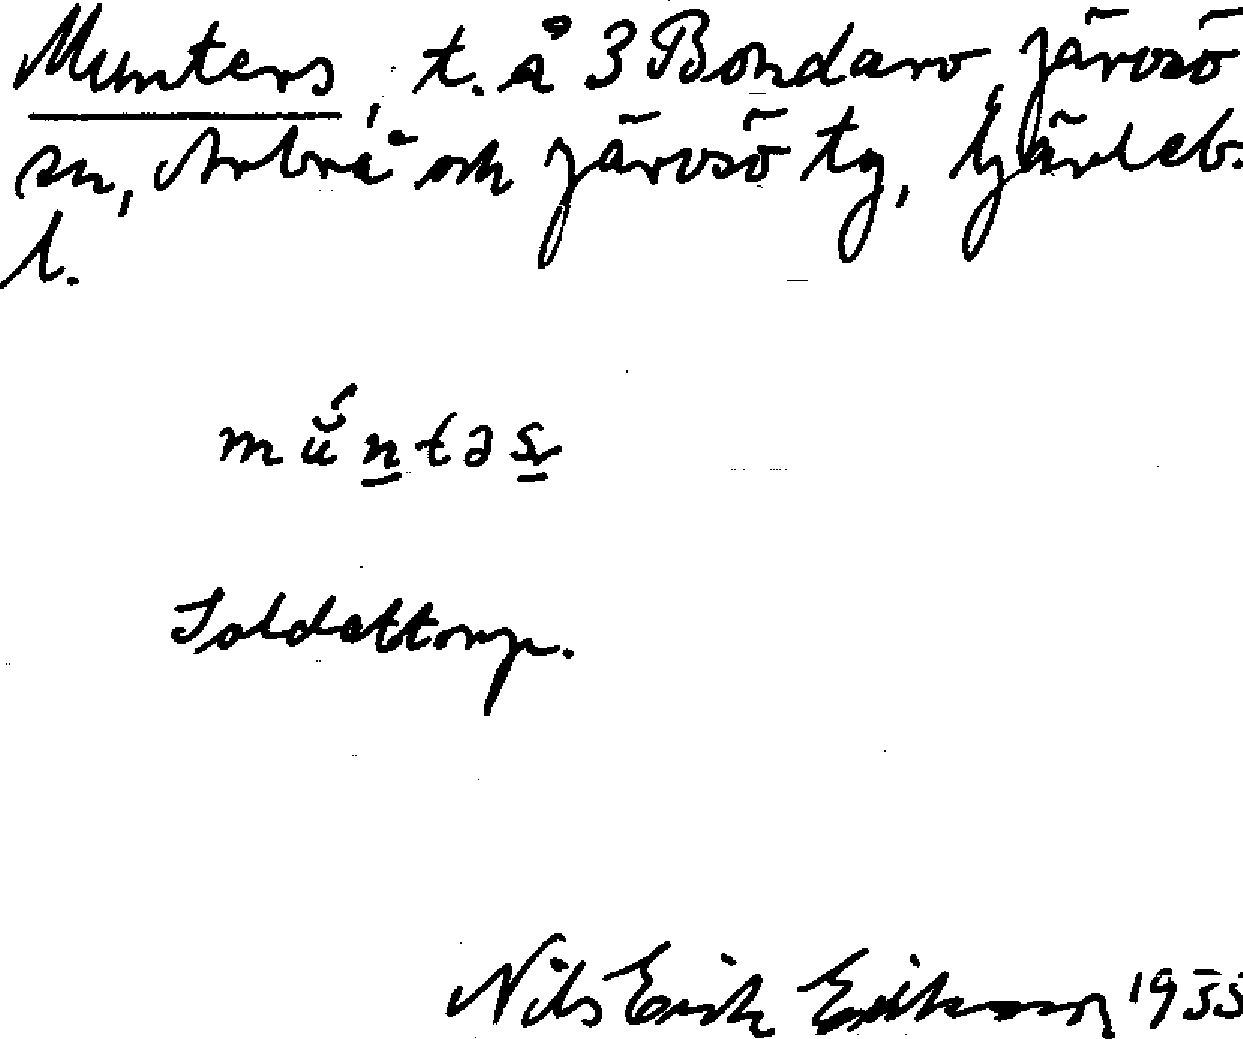 Munters, t. å 3 Bondarv, Järvsö
sn, Arbrå och Järvsö tg, Gävleb.
l.
mu̇́ntəs
Soldattorp.
Nils Erik Eriksson 1955